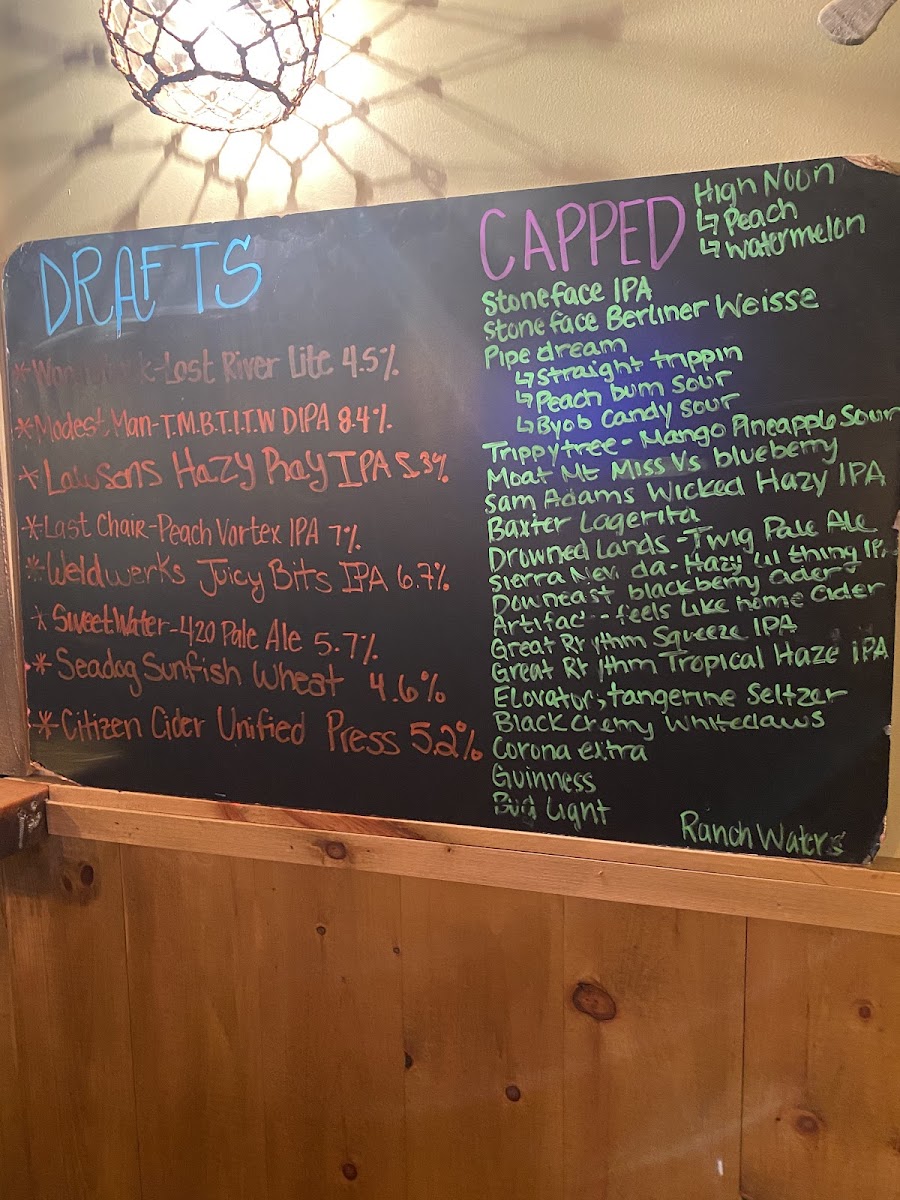 DRAFTS
* Lost River Lite 4.5%
*Modest Man-T.M.B.T.I.T.W DIPA 8.4%
*Lawsons Hazy Ray IPA 5.3%
*Last Chair-Peach Vortex IPA 7%
*Weldwerks Juicy Bits IPA 6.7%
* SweetWater-420 Pale Ale 5.7%
* Seadog Sunfish Wheat 4.6%
* Citizen Cider Unified Press 5.2%
CAPPED
High Noon
↳ Peach
↳ Watermelon
Stoneface IPA
Stoneface Berliner Weisse
Pipe dream
↳ Straight trippin
↳ Peach bum sour
↳ Byob candy sour
Trippytree - Mango Pineapple Sour
Moat Mt Miss Vs blueberry
Sam Adams Wicked Hazy IPA
Baxter Lagerita
Drowned Lands -Twig Pale Ale
Sierra Nev da- Hazy lil thing IPA
Downeast blackberry cider
Artifac - feels like home cider
Great R ythm Squeeze IPA
Great R ythm Tropical Haze IPA
Elovator; tangerine Seltzer
Black Cherry Whiteclaws
Corona extra
Guinness
Bud Light
Ranch Waters